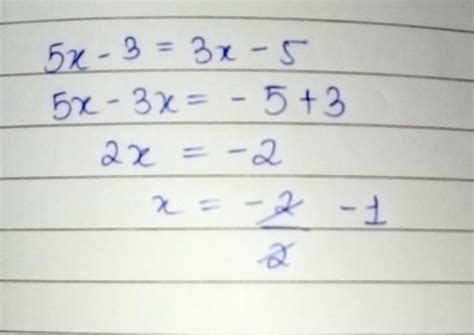 5x - 3 = 3x - 5
5x - 3x = - 5 + 3
2x = - 2
x = - 2/2 - 1